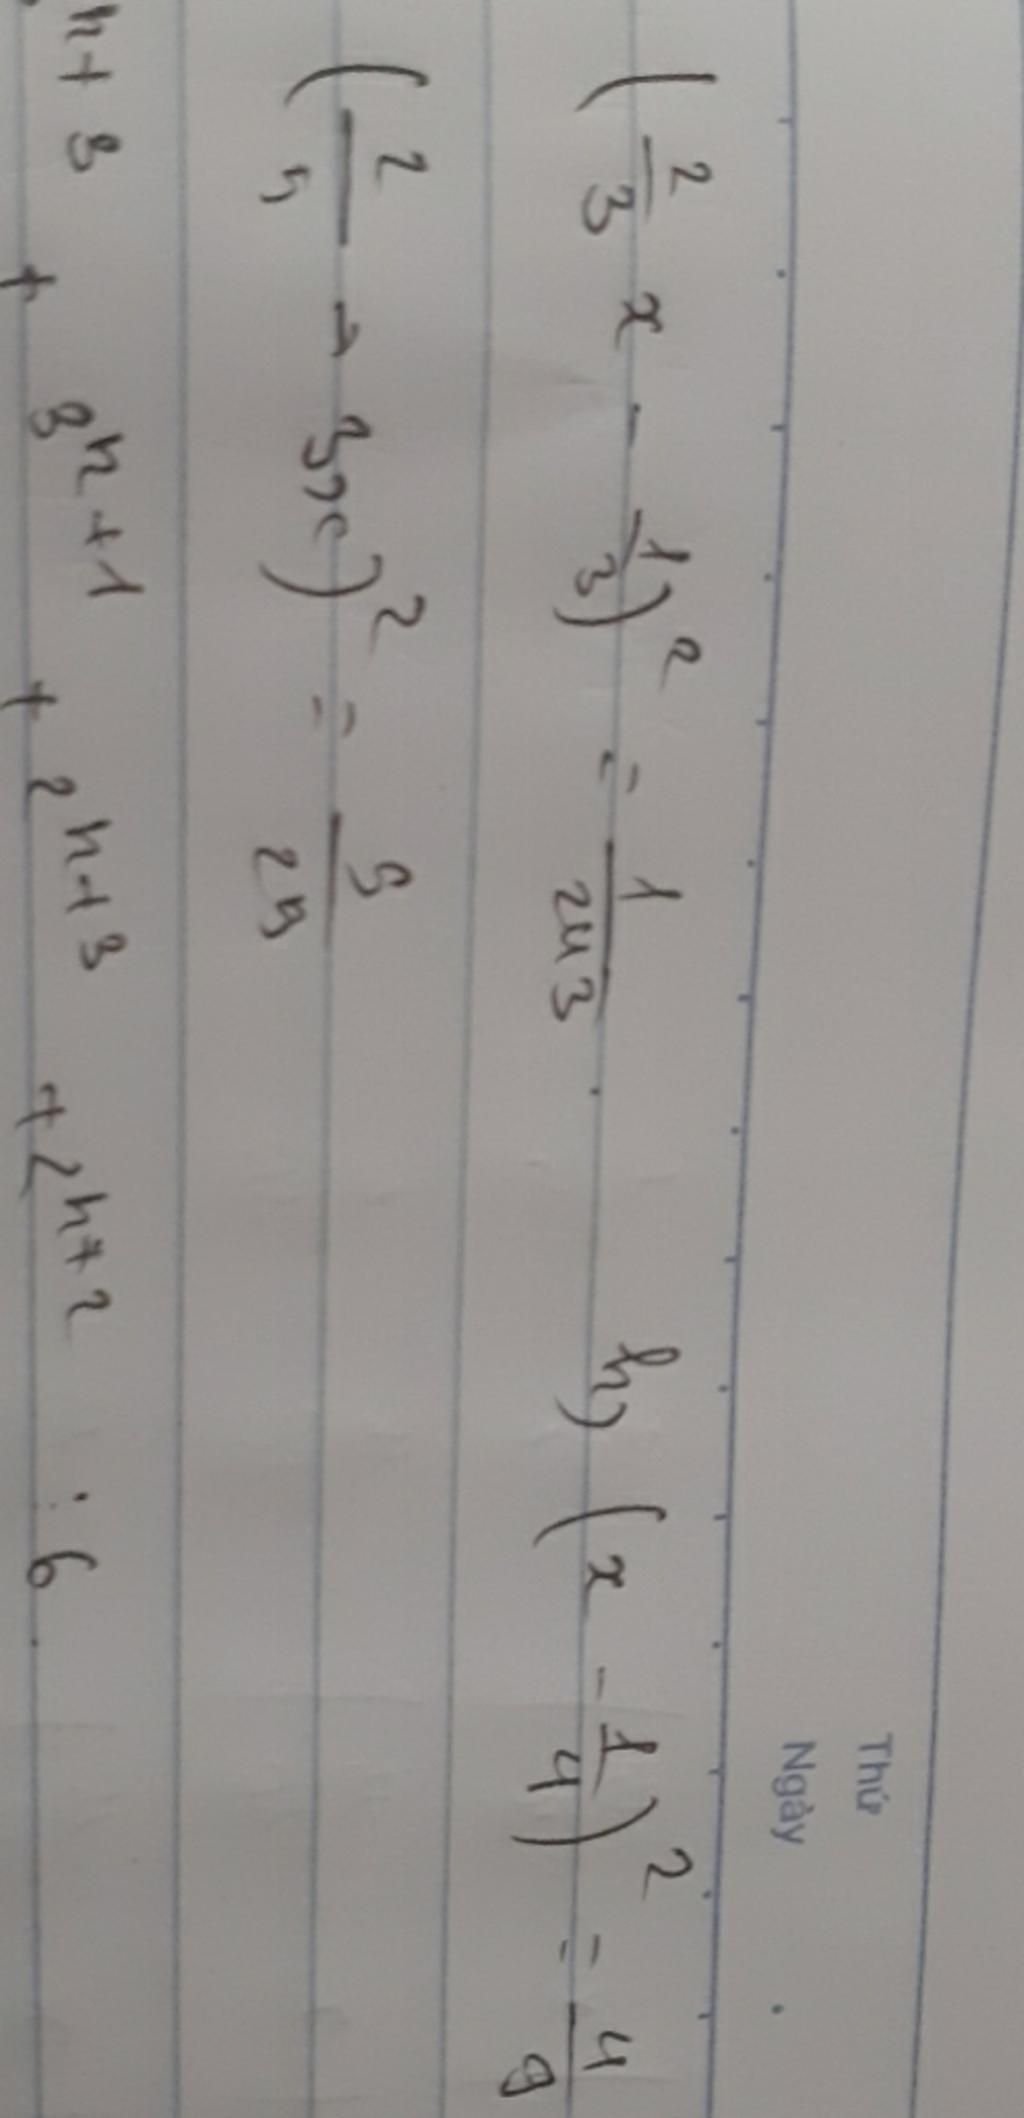 Thứ
Ngày
(2/3 x - 1/3)² = 1/243. h) (x - 1/4)² = 4/9
(2/5 - 3x)² = 9/25
n+3 + 3ⁿ⁺¹ + 2ⁿ⁺³ + 2ⁿ⁺² : 6